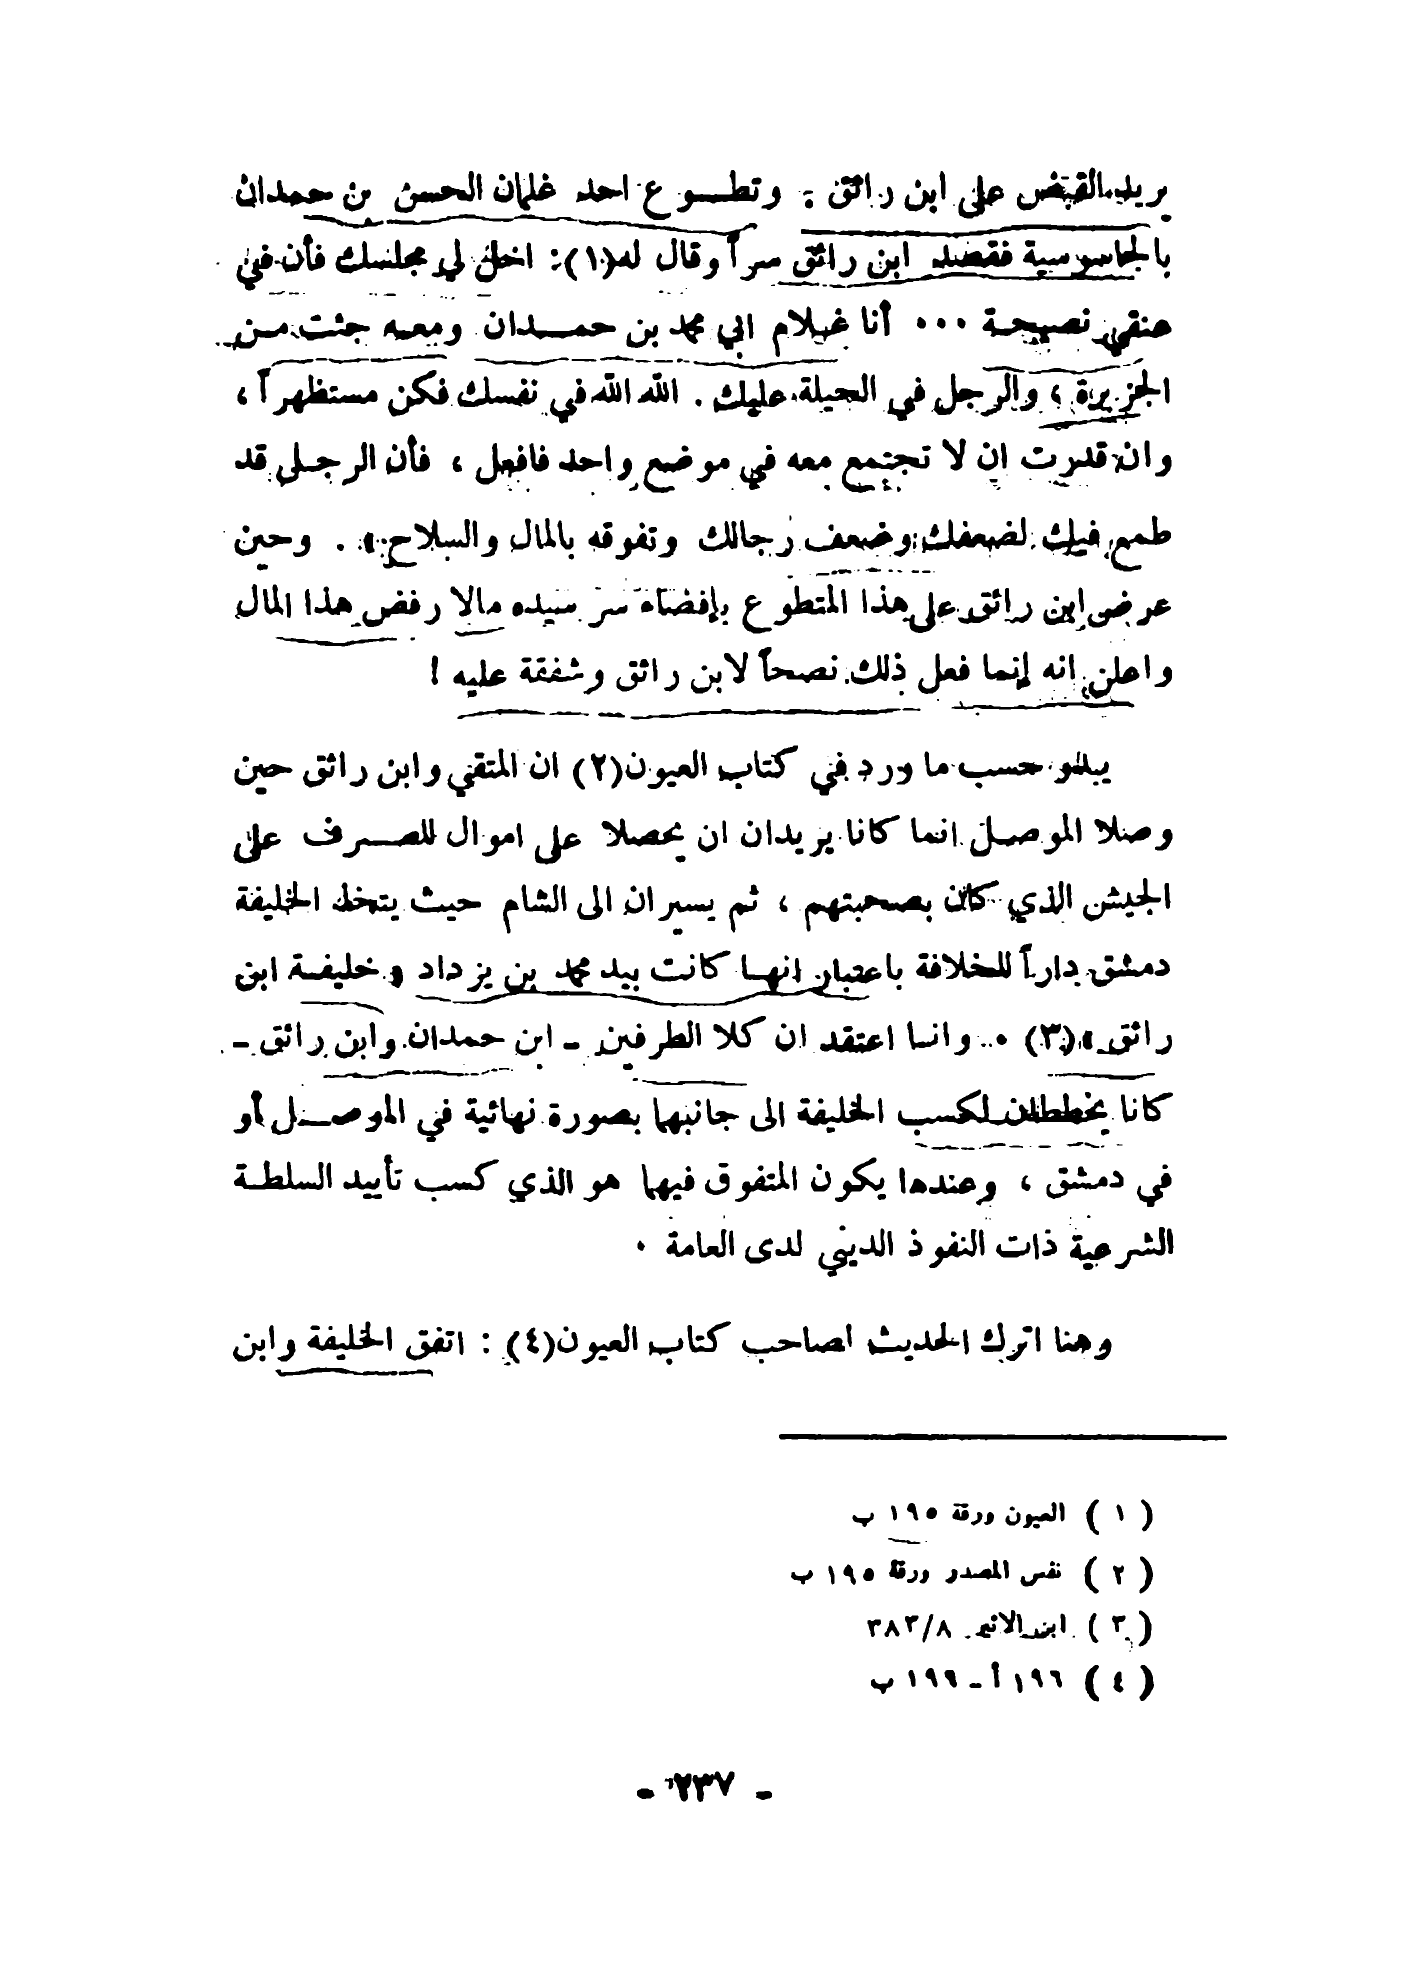 يريد القبض على ابن رائق . وتطـوع احد غلمان الحسن بن حمدان
بالجاسوسية فقصد ابن رائق سراً وقال له(١): اخل لي مجلسك فأن في
عنقي نصيحة ٠٠٠ أنا غلام ابي محمد بن حمـدان ومعـه جئت مـن
الجزيرة ، والرجل في الحيلة عليك . الله الله في نفسك فكن مستظهراً ،
وان قدرت ان لا تجتمع معه في موضع واحد فافعل ، فأن الرجـل قد
طمع فيك لضعفك وضعف رجالك وتفوقه بالمال والسلاح » . وحين
عرض ابن رائق على هذا المتطوع بإفضاء سر سيده مالا رفض هذا المال
واعلن انه إنما فعل ذلك نصحاً لابن رائق وشفقة عليه !
يبدو حسب ما ورد في كتاب العيون(٢) ان المتقي وابن رائق حين
وصلا الموصـل انما كانا يريدان ان يحصلا على اموال للصـرف على
الجيش الذي كان بصحبتهم ، ثم يسيران الى الشام حيث يتخذ الخليفة
دمشق داراً للخلافة باعتبار انهـا كانت بيد محمد بن يزداد « خليفـة ابن
رائق »(٣) ٠ وانـا اعتقد ان كلا الطرفين - ابن حمدان وابن رائق -
كانا يخططان لكسب الخليفة الى جانبهما بصورة نهائية في الموصـل أو
في دمشق ، وعندها يكون المتفوق فيهما هو الذي كسب تأييد السلطـة
الشرعية ذات النفوذ الديني لدى العامة ٠
وهنا اترك الحديث لصاحب كتاب العيون(٤) : اتفق الخليفة وابن
( ١ ) العيون ورقة ١٩٥ ب
( ٢ ) نفس المصدر ورقة ١٩٥ ب
( ٣ ) ابن الاثير ٣٨٣/٨
( ٤ ) ١٩٦ أ - ١٩٩ ب
- ٢٣٧ -